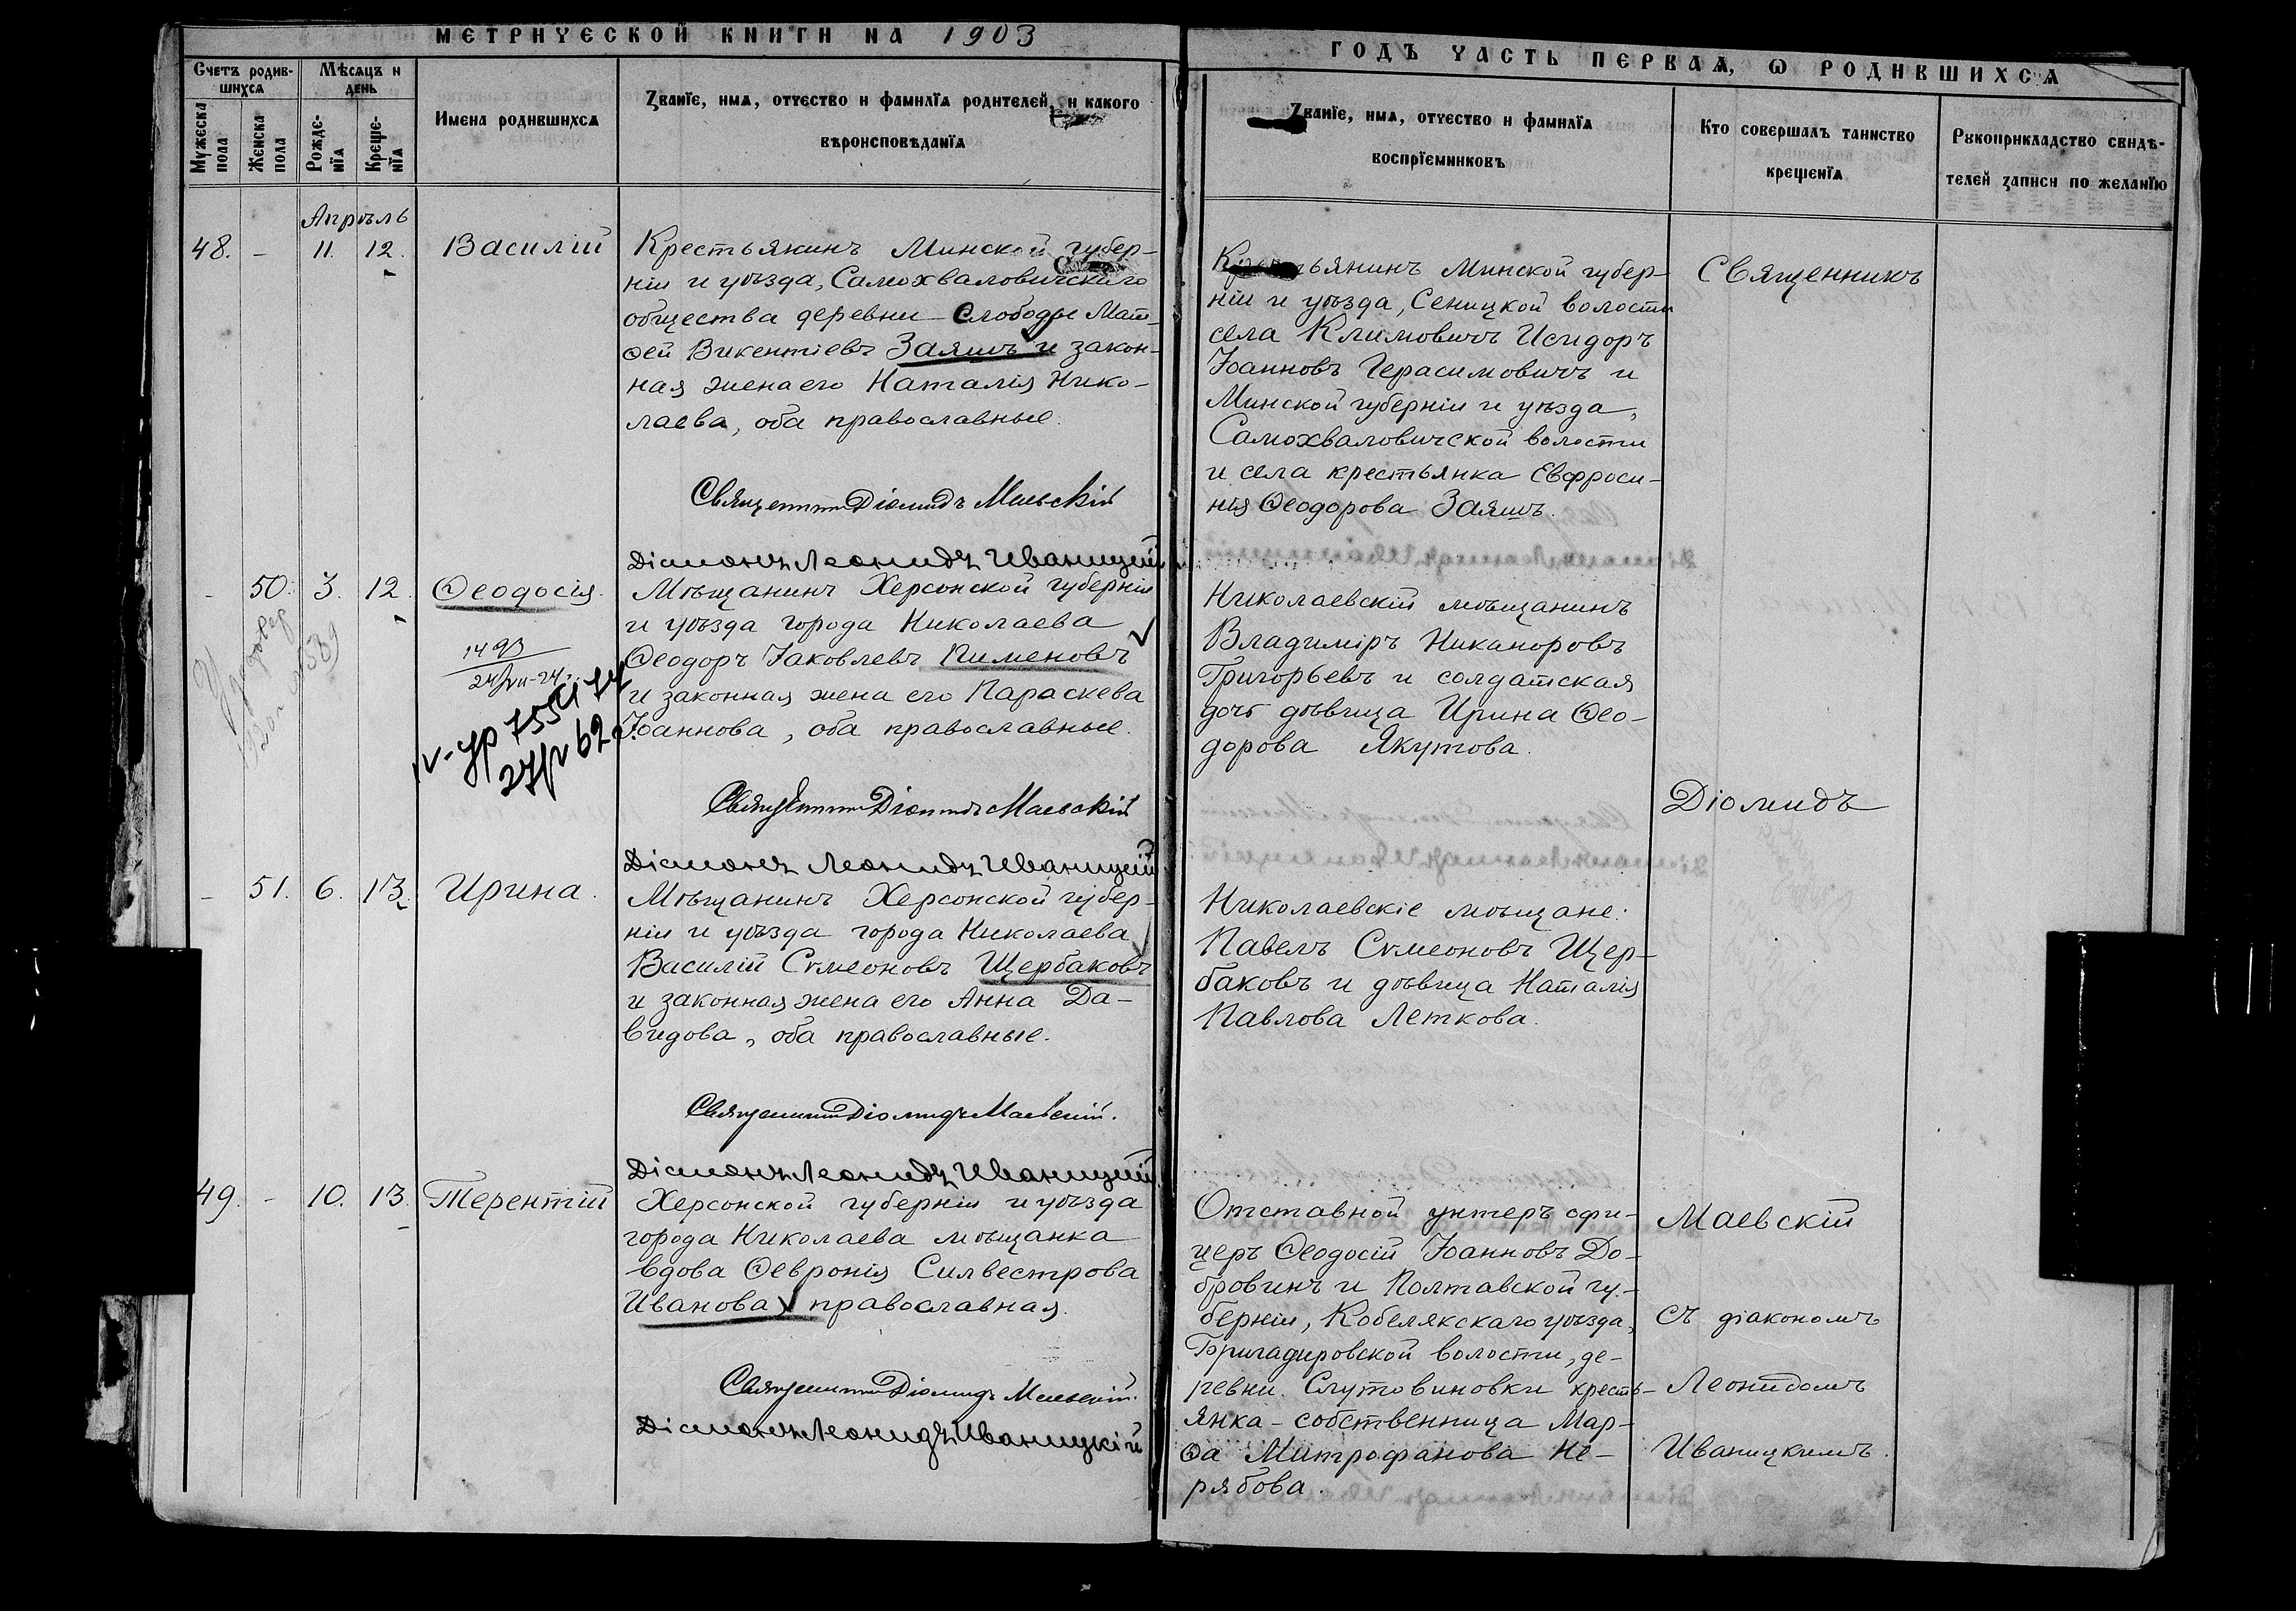 МЕТРИЧЕСКОЙ КНИГИ НА 1903
ГОДЪ ЧАСТЬ ПЕРВАЯ, Ѡ РОДИВШИХСЯ
Счетъ родив-
шихся
Мѣсяцъ и
день
Мужеска
пола
Женска
пола
Рожде-
нїя
Креще-
нїя
Имена родившихся
Званїе, имя, отчество и фамилїя родителей, и какого
вѣроисповѣданїя
Званїе, имя, отчество и фамилїя
воспрїемниковъ
Кто совершалъ таинство
крещенїя
Рукоприкладство свидѣ-
телей записи по желанїю
Апрѣль
48. - 11. 12. Василій
Крестьянинъ Минской губер-
ніи и уѣзда, Самохваловичскаго
общества деревни Слободы Мат-
ѳей Викентіевъ Заяшъ и закон-
ная жена его Наталія Нико-
лаева, оба православные.
Священникъ Діомидъ Маевскій
Діаконъ Леонидъ Иваницкій
Крестьянинъ Минской губер-
ніи и уѣзда, Сеницкой волости
села Климовичъ Исидоръ
Іоанновъ Герасимовичъ и
Минской губерніи и уѣзда,
Самохваловичской волости
и села крестьянка Евфроси-
нія Ѳеодорова Заяшъ.
Священникъ
- 50. 3. 12. Ѳеодосія.
1493
Мѣщанинъ Херсонской губерніи
и уѣзда города Николаева
Ѳеодоръ Іаковлевъ Пименовъ
и законная жена его Параскева
Іоаннова, оба православные.
Священникъ Діомидъ Маевскій
Діаконъ Леонидъ Иваницкій
Николаевскій мѣщанинъ
Владиміръ Никаноровъ
Григорьевъ и солдатская
дочь дѣвица Ирина Ѳео-
дорова Якутова.
Діомидъ
- 51. 6. 13. Ирина.
Мѣщанинъ Херсонской губер-
ніи и уѣзда города Николаева
Василій Сѵмеоновъ Щербаковъ
и законная жена его Анна Да-
видова, оба православные.
Священникъ Діомидъ Маевскій.
Діаконъ Леонидъ Иваницкій
Николаевскіе мѣщане:
Павелъ Сѵмеоновъ Щер-
баковъ и дѣвица Наталія
Павлова Леткова.
49. - 10. 13. Терентій
Херсонской губерніи и уѣзда
города Николаева мѣщанка
вдова Ѳевронія Силвестрова
Иванова, православная.
Священникъ Діомидъ Маевскій.
Діаконъ Леонидъ Иваницкій
Отставной унтеръ офи-
церъ Ѳеодосій Іоанновъ До-
бровинъ и Полтавской гу-
берніи, Кобелякскаго уѣзда,
Бригадировской волости, де-
ревни Слутовиновки кресть-
янка-собственница Мар-
ѳа Митрофанова Не-
рябова.
Маевскій
съ діакономъ
Леонидомъ
Иваницкимъ.